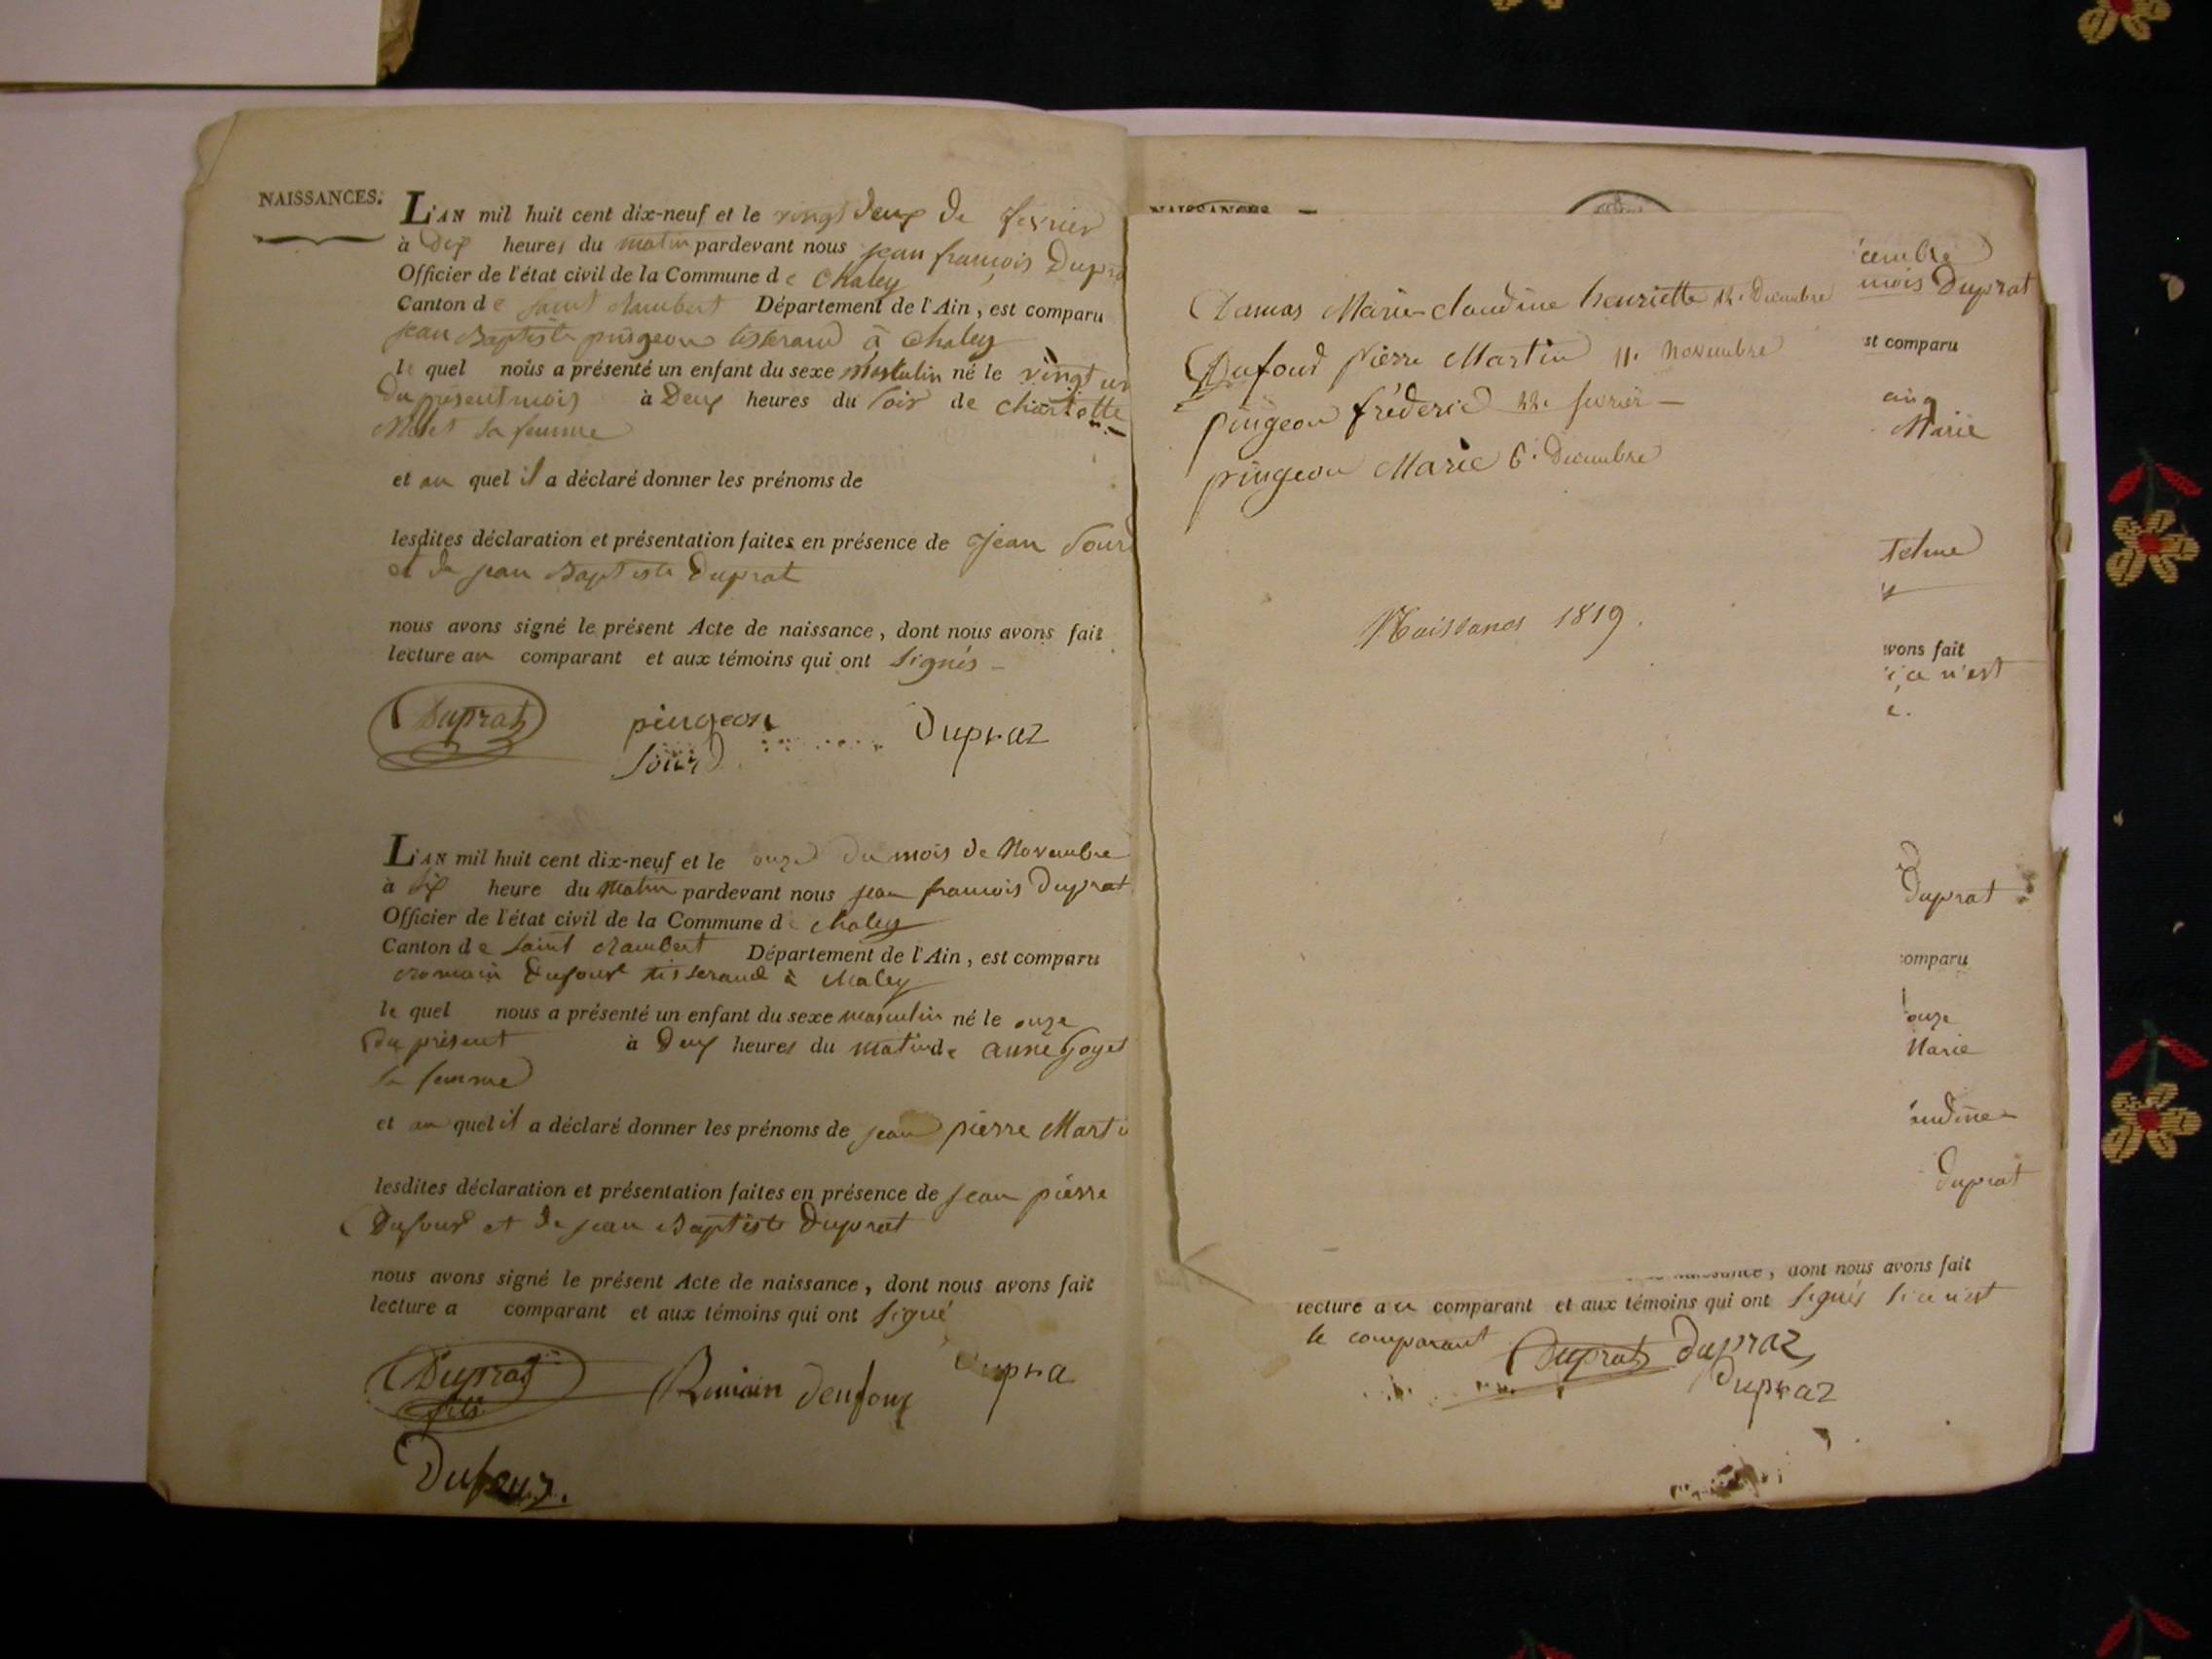 NAISSANCES.
L'AN mil huit cent dix-neuf et le vingt deux de fevrier
à dix heures du matin pardevant nous jean françois Dupra
Officier de l'état civil de la Commune de Chaley
Canton de saint Rambert Département de l'Ain, est comparu
jean Baptiste pingeon tisserand à Chaley
le quel nous a présenté un enfant du sexe masculin né le vingt un
du present mois à Deux heures du soir de
sa femme
et au quel il a déclaré donner les prénoms de
lesdites déclaration et présentation faites en présence de jean
et de jean Baptiste Duprat
nous avons signé le présent Acte de naissance, dont nous avons fait
lecture au comparant et aux témoins qui ont signés
Duprat pingeon Dupraz
L'AN mil huit cent dix-neuf et le onze du mois de Novembre
à six heure du matin pardevant nous jean francois Duprat
Officier de l'état civil de la Commune de chaley
Canton de saint Rambert Département de l'Ain, est comparu
romain Dufour tisserand à chaley
le quel nous a présenté un enfant du sexe masculin né le onze
du présent à Deux heures du matin de anne goyet
sa femme
et au quel il a déclaré donner les prénoms de jean pierre Marti
lesdites déclaration et présentation faites en présence de jean pierre
Dufour et de jean Baptiste Duprat
nous avons signé le présent Acte de naissance, dont nous avons fait
lecture a comparant et aux témoins qui ont signé
Duprat fils Romain
Dufour.
NAISSANCES
cembre
Damas Marie claudine henriette 12. Decembre
Dufour pierre Martin 11. Novembre
pingeon fréderic 22. fevrier
pingeon Marie 6. Decembre
Naissances 1819.
mois Duprat
st comparu
cinq
Marie
vons fait
ce n'est
Duprat
comparu
onze
Marie
audine
Duprat
dont nous avons fait
lecture au comparant et aux témoins qui ont signés si ce n'est
le comparant Duprat Dupraz
Dupraz